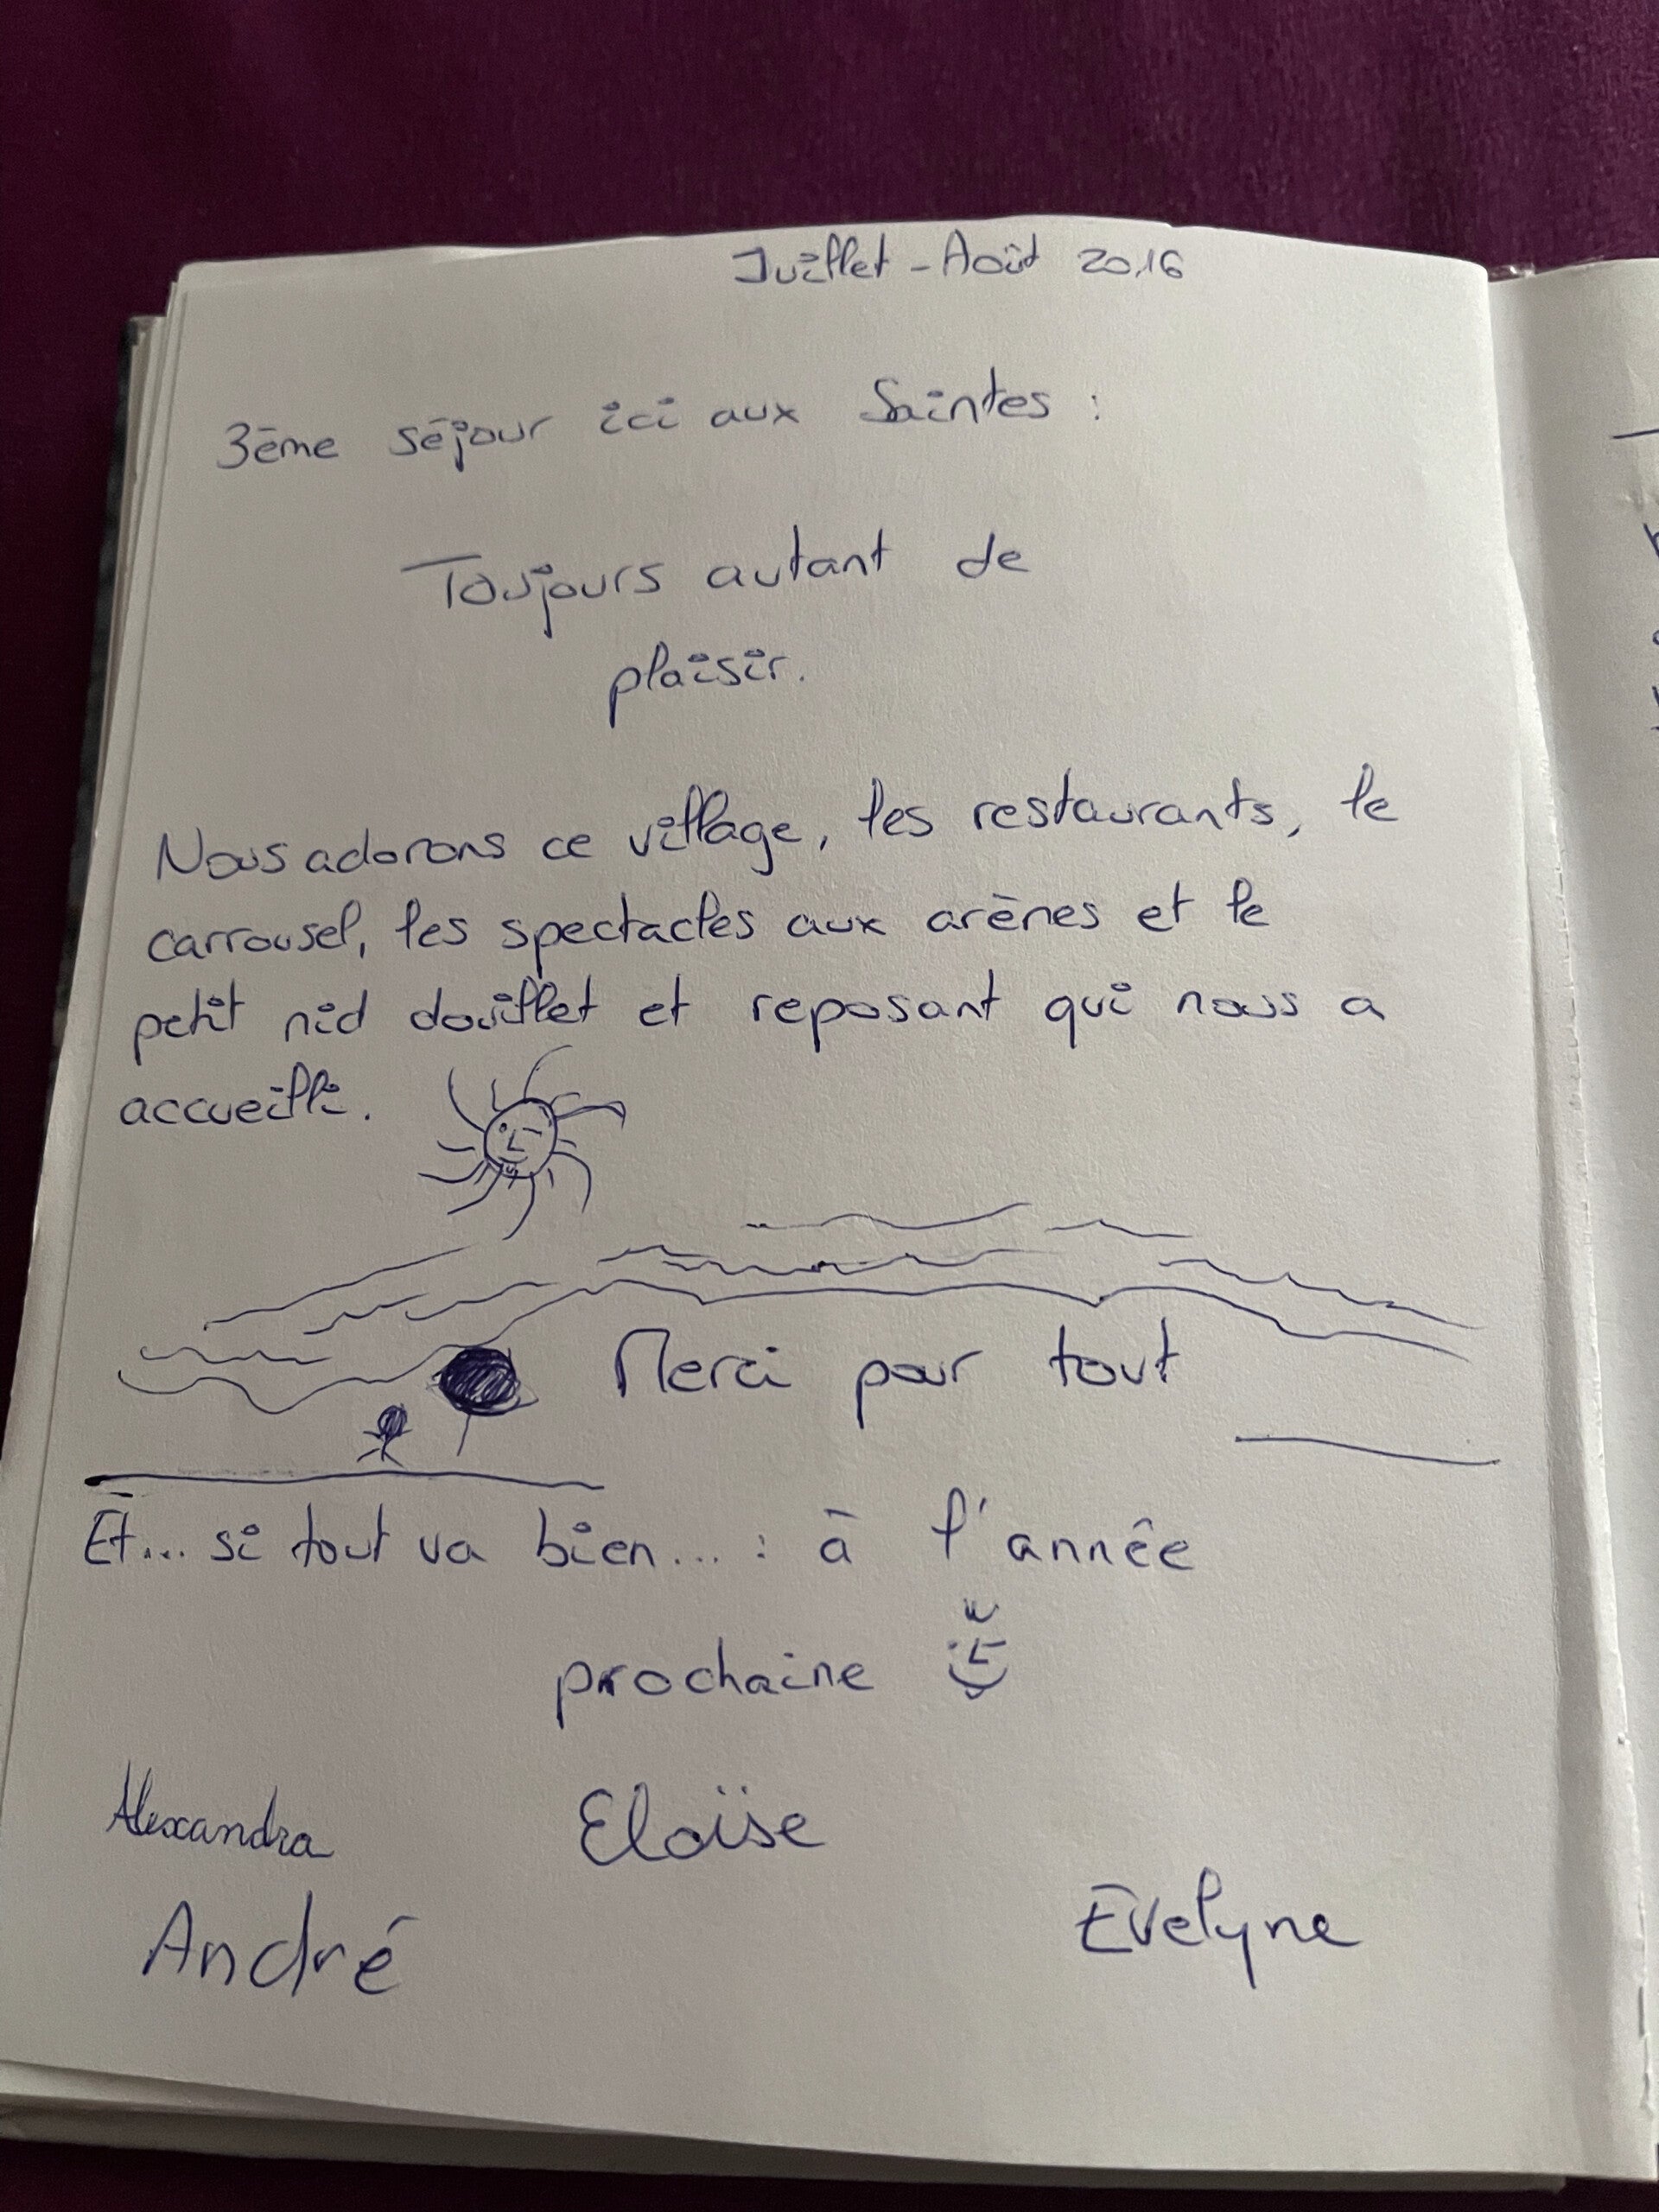 Juillet - Août 2016
3ème séjour ici aux Saintes :
Toujours autant de
plaisir.
Nous adorons ce village, les restaurants, le
carrousel, les spectacles aux arènes et le
petit nid douillet et reposant qui nous a
accueilli.
Merci pour tout
Et... si tout va bien... : à l'année
prochaine
Alexandra
Eloïse
André
Evelyne